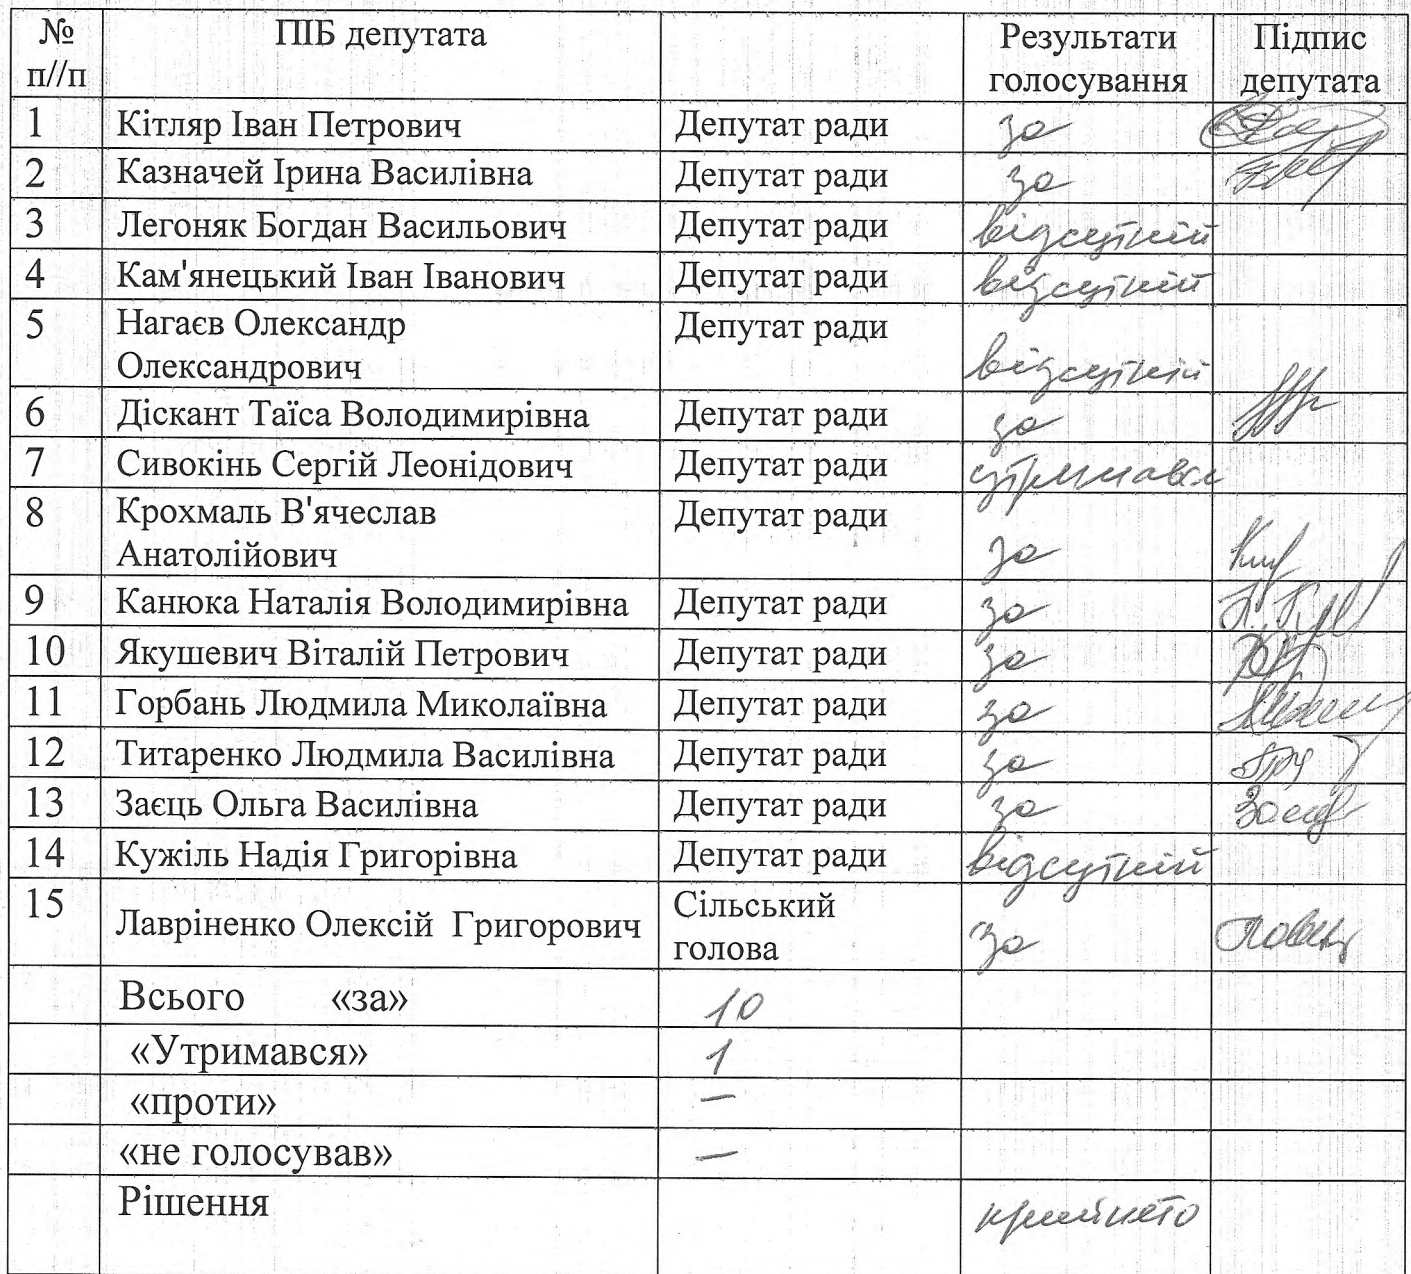 № п//п ПІБ депутата Результати голосування Підпис депутата
1 Кітляр Іван Петрович Депутат ради за
2 Казначей Ірина Василівна Депутат ради за
3 Легоняк Богдан Васильович Депутат ради відсутній
4 Кам'янецький Іван Іванович Депутат ради відсутній
5 Нагаєв Олександр Депутат ради
Олександрович відсутній
6 Діскант Таїса Володимирівна Депутат ради за
7 Сивокінь Сергій Леонідович Депутат ради утримався
8 Крохмаль В'ячеслав Депутат ради
Анатолійович за
9 Канюка Наталія Володимирівна Депутат ради за
10 Якушевич Віталій Петрович Депутат ради за
11 Горбань Людмила Миколаївна Депутат ради за
12 Титаренко Людмила Василівна Депутат ради за
13 Заєць Ольга Василівна Депутат ради за
14 Кужіль Надія Григорівна Депутат ради відсутній
15 Лавріненко Олексій Григорович Сільський голова за
Всього «за» 10
«Утримався» 1
«проти» —
«не голосував» —
Рішення прийнято